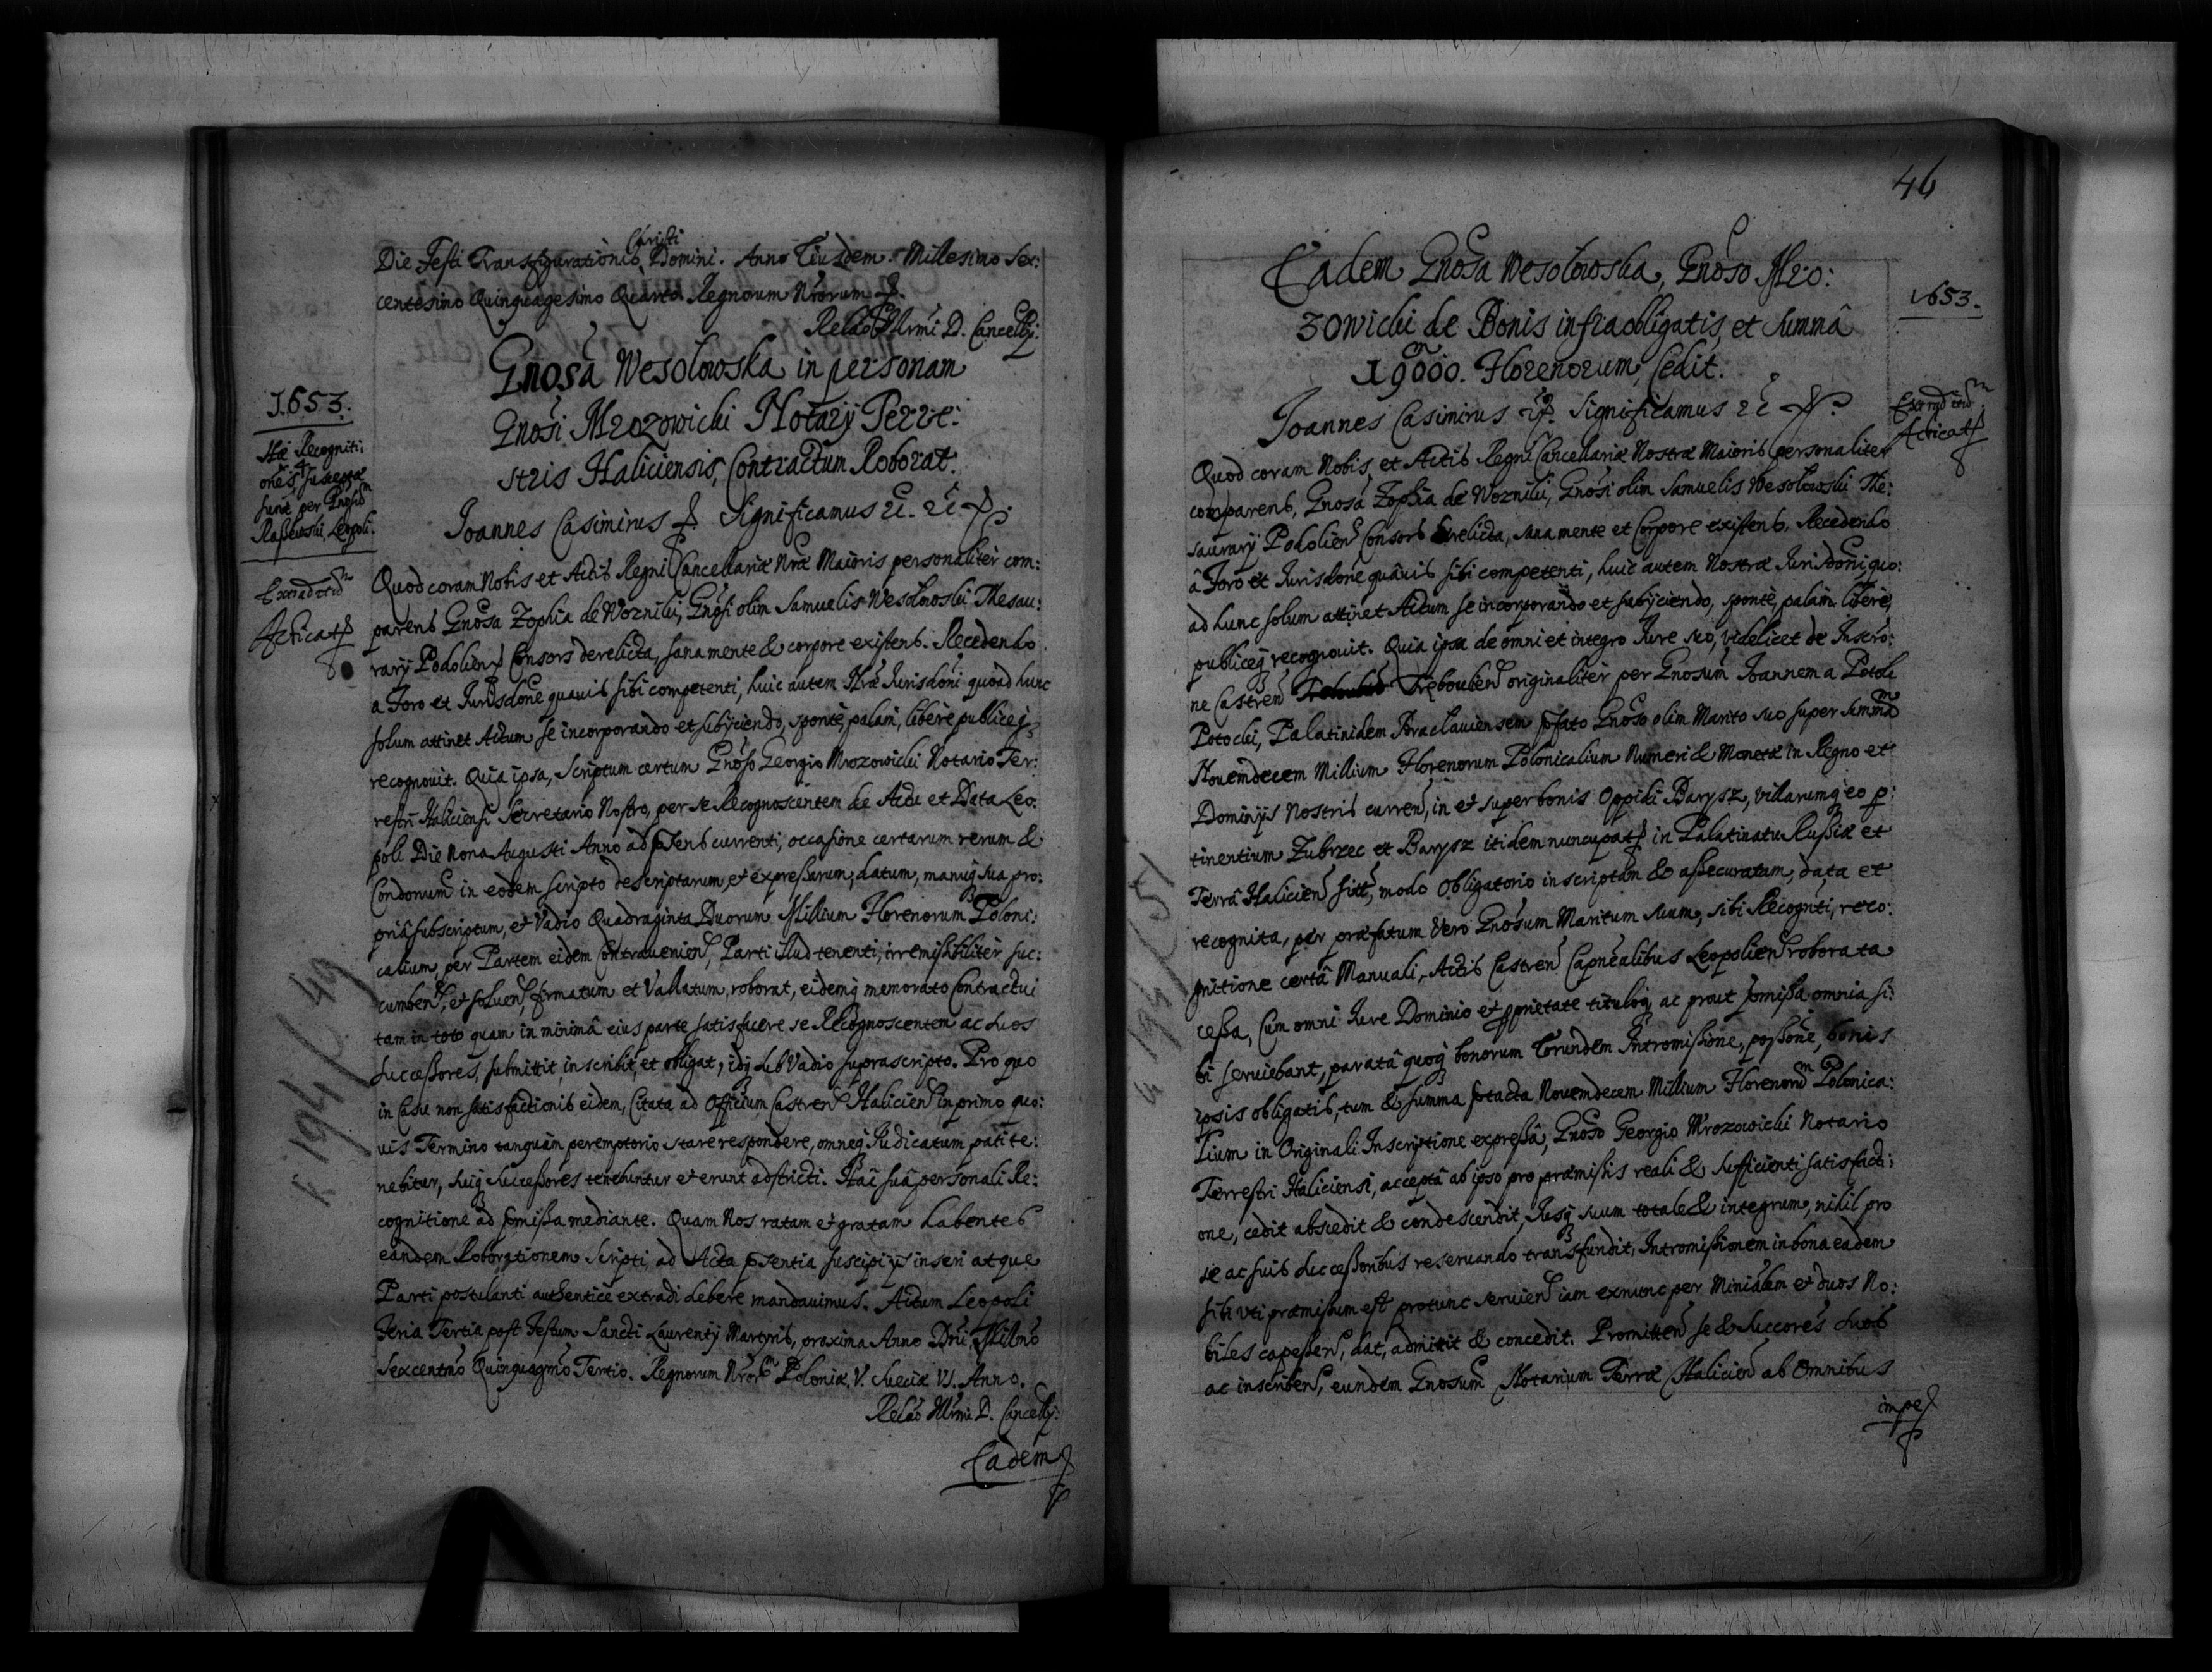 Christi
Die Festi Transfigurationis Domini. Anno Eiusdem Millesimo Sex:
centesimo Quinquagesimo Quarto Regnorum Nrorum
Relao Illrmi D. Cancell:
Gnosa Wesolowska in personam
Gnosi Mrozowicki Notarij Terre:
stris Haliciensis, Contractum Roborat.
1653.
Hæ Recogniti:
ones susceptæ
sunt per Gnosum
Leopoli.
Extradetur
Joannes Casimirus Significamus
Quod coram Nobis et Actis Regni Cancellariæ Nræ Maioris personaliter com:
parens Gnosa Zophia de Wozniki, Gnosi olim Samuelis Wesolowski Thesau:
rarij Podolien Consors derelicta, sana mente & corpore existens. Recedendo
a Foro et Jurisdone quauis sibi competenti, huic autem Nræ Jurisdoni quoad hunc
solum attinet Actum se incorporando et subijciendo, sponte, palam, libere publiceq
recognouit. Quia ipsa, Scriptum certum Gnoso Georgio Mrozowicki Notario Ter:
restri Haliciensi Secretario Nostro, per se Recognoscentem de Actu et Data Leo:
poli Die Nona Augusti Anno ad pnsens currenti, occasione certarum rerum &
Condonum in eodem scripto descriptarum et expressarum, datum, manuq sua pro:
priâ subscriptum, et Vadio Quadraginta Duorum Millium Florenorum Poloni:
calium, per Partem eidem Contrauenien, Parti illud tenenti, irremissibiliter suc:
cumben, et soluen, firmatum et Vallatum, roborat, eidemq memorato Contractui
tam in toto quam in minimâ eius parte satisfacere se Recognoscentem ac suos
Successores, submittit, inscribit, et obligat, idq sub Vadio suprascripto. Pro quo
in Casu non satisfactionis eidem, Citata ad Officium Castren Halicien in primo quo:
uis Termino tanquam peremptorio stare respondere, omneq Judicatum pati te:
nebitur, suiq Successores tenebuntur et erunt adstricti. Hac suâ personali Re:
cognitione ad pmissa mediante. Quam Nos ratam et gratam habentes
eandem Roborationem Scripti, ad Acta pnsentia suscipi inseri atque
Parti postulanti authentice extradi debere mandauimus. Actum Leopoli
Feria Tertia post Festum Sancti Laurentij Martyris, proxima Anno Dni, Millmo
Sexcentmo Quinquagmo Tertio. Regnorum Nrorum Poloniæ V. Sueciæ VI. Anno.
Relao Illrmi D. Cancell:
Eadem
46
Eadem Gnosa Wesolowska, Gnoso Mro:
zowicki de Bonis infra obligatis, et Summâ
19000. Florenorum, Cedit.
1653.
Extradetur
Joannes Casimirus Significamus
Quod coram Nobis, et Actis Regni Cancellariæ Nostræ Maioris personaliter
comparens, Gnosa Zophia de Woznïki, Gnosi olim Samuelis Wesolowski The:
saurarij Podolien Consors derelicta, sana mente et Corpore existens, Recedendo
â Foro et Jurisdone quâuis sibi competenti, huic autem Nostræ Jurisdoni, quo:
ad hunc solum attinet Actum se incorporando et subijciendo, sponte, palam libere,
publiceq recognouit. Quia ipsa de omni et integro Jure suo, videlicet de Inscro:
ne Castren Trębowlien originaliter per Gnosum Joannem a Potok
Potocki, Palatinidem Braclauiensem pfato Gnoso olim Marito suo super summam
Nouemdecem Millium Florenorum Polonicalium Numeri & Monetæ in Regno et
Dominijs Nostris curren, in et super bonis Oppidi Barysz, villarumq eo p:
tinentium Zubrzec et Barysz itidem nuncupat in Palatinatu Russiæ et
Terrâ Halicien sitt, modo Obligatorio inscriptam & assecuratam, data et
recognita, per præfatum vero Gnosum Maritum suum, sibi Recognti, reco:
gnitione certâ Manuali, Actis Castren Capnealibus Leopolien roborata
cessa, Cum omni Jure Dominio et pprietate tituloq, ac prout pmissa omnia si:
bi seruiebant, paratâ quoq bonorum eorundem Intromissione, possone, bonis
ipsis obligatis, tum & summa ptacta Nouemdecem Millium Florenorum Polonica:
lium in Originali Inscriptione expressâ, Gnoso Georgio Mrozowicki Notario
Terrestri Haliciensi, acceptâ ab ipso pro præmissis reali & sufficienti satisfacti:
one, cedit abscedit & condescendit, Jusq suum totale & integrum, nihil pro
se ac suis Successoribus reseruando transfundit, Intromissionem in bona eadem
sibi vti præmissum est protunc seruien iam exnunc per Minialem et duos No:
biles capessen, dat, admittit & concedit. Promitten se & Succores suos
ac inscriben, eundem Gnosum Notarium Terræ Halicien ab Omnibus
impe